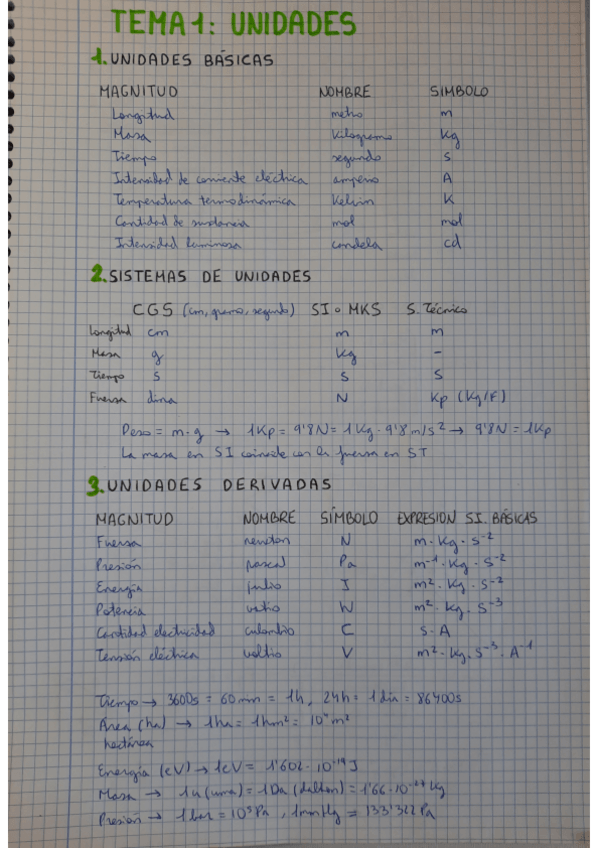 TEMA 1: UNIDADES
1. UNIDADES BÁSICAS
MAGNITUD NOMBRE SIMBOLO
Longitud metro m
Masa kilogramo Kg
Tiempo segundo s
Intensidad de corriente eléctrica amperio A
Temperatura termodinámica Kelvin K
Cantidad de sustancia mol mol
Intensidad luminosa candela cd
2. SISTEMAS DE UNIDADES
CGS (cm, gramo, segundo) SI o MKS S. Técnico
Longitud cm m m
Masa g Kg -
Tiempo s s s
Fuerza dina N Kp (Kg/F)
Peso = m·g → 1Kp = 9'8N = 1Kg·9'8 m/s² → 9'8N = 1Kp
La masa en SI coincide con la fuerza en ST
3. UNIDADES DERIVADAS
MAGNITUD NOMBRE SÍMBOLO EXPRESION SI. BÁSICAS
Fuerza newton N m·Kg·s⁻²
Presión pascal Pa m⁻¹·Kg·s⁻²
Energía julio J m²·Kg·s⁻²
Potencia vatio W m²·Kg·s⁻³
Cantidad electricidad culombio C s·A
Tensión eléctrica voltio V m²·Kg·s⁻³·A⁻¹
Tiempo → 3600s = 60min = 1h, 24h = 1día = 86400s
Área (ha) → 1ha = 1hm² = 10⁴m²
hectárea
Energía (eV) → 1eV = 1'602·10⁻¹⁹J
Masa → 1u (uma) = 1Da (dalton) = 1'66·10⁻²⁷Kg
Presión → 1bar = 10⁵Pa, 1mmHg = 133'322Pa